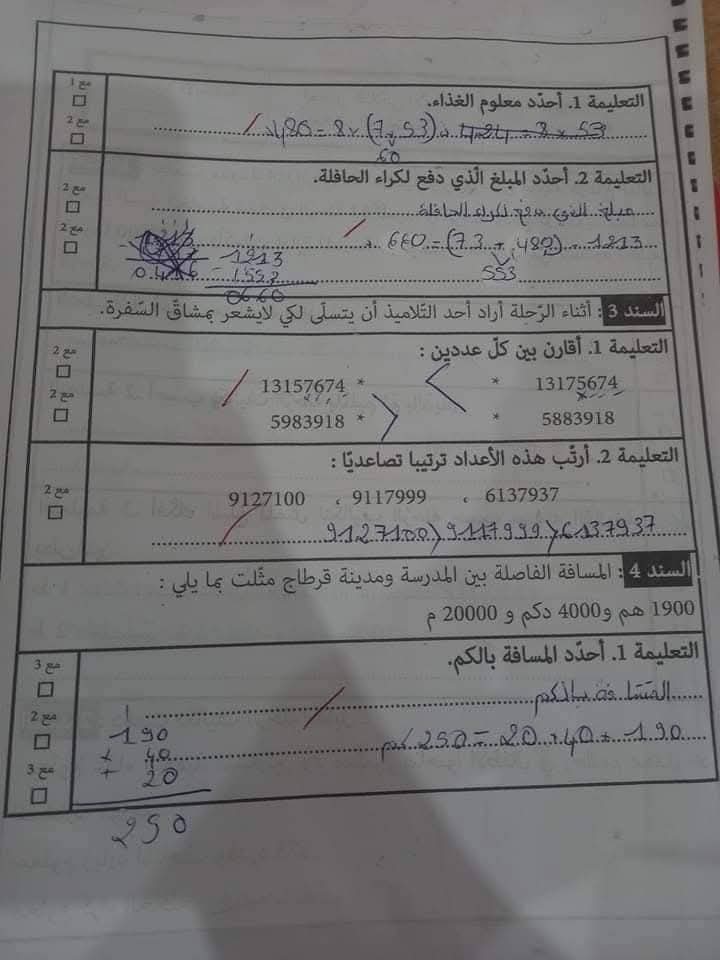 مع 1
مع 2
التعليمة 1. أحدّد معلوم الغذاء.
480 = 8 × (7 + 53)
60
التعليمة 2. أحدّد المبلغ الّذي دفع لكراء الحافلة.
مع 2
مع 2
مبلغ الذي دفع لكراء الحافلة
660 = (73 + 480) - 1213
553
0660
السند 3 : أثناء الرّحلة أراد أحد التّلاميذ أن يتسلّى لكي لايشعر بمشاقّ السّفرة.
التعليمة 1. أقارن بين كلّ عددين :
مع 2
مع 2
13175674 * < * 13157674
5883918 * > * 5983918
التعليمة 2. أرتّب هذه الأعداد ترتيبا تصاعديّا :
مع 2
6137937 ، 9117999 ، 9127100
9127100 > 9117999 > 6137937
السند 4 : المسافة الفاصلة بين المدرسة ومدينة قرطاج مثّلت بما يلي :
1900 هم و4000 دكم و 20000 م
التعليمة 1. أحدّد المسافة بالكم.
مع 3
مع 2
مع 3
المسافة بالكم
190 + 40 + 20 = 250 كم
1
190
+ 40
+ 20
250